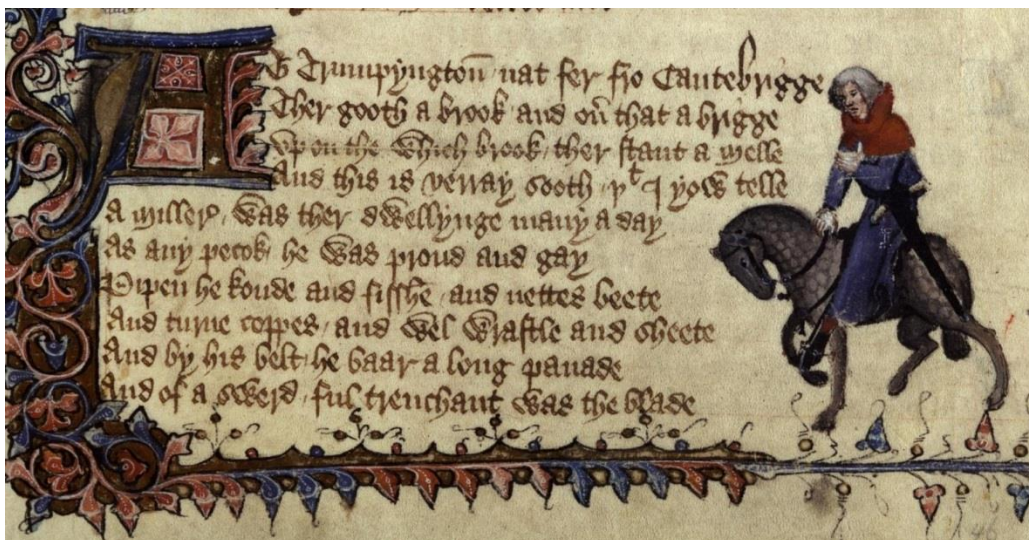 At Trumpyngtoun nat fer fro Cantebrigge
Ther gooth a brook and oūr that a brigge
Vp on the which brook / ther stant a melle
And this is verray sooth / yᵗ I yow telle
A millere / was ther dwellynge many a day
As any pecok / he was proud and gay
Pipen he koude and fisshe / and nettes beete
And turne coppes / and wel wrastle and sheete
And by his belt / he baar a long panade
And of a swerd / ful trenchant was the blade